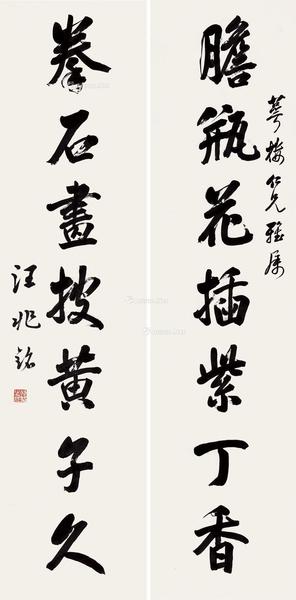 萼梅仁兄雅屬
膽瓶花插紫丁香
拳石畫披黃子久
汪兆銘